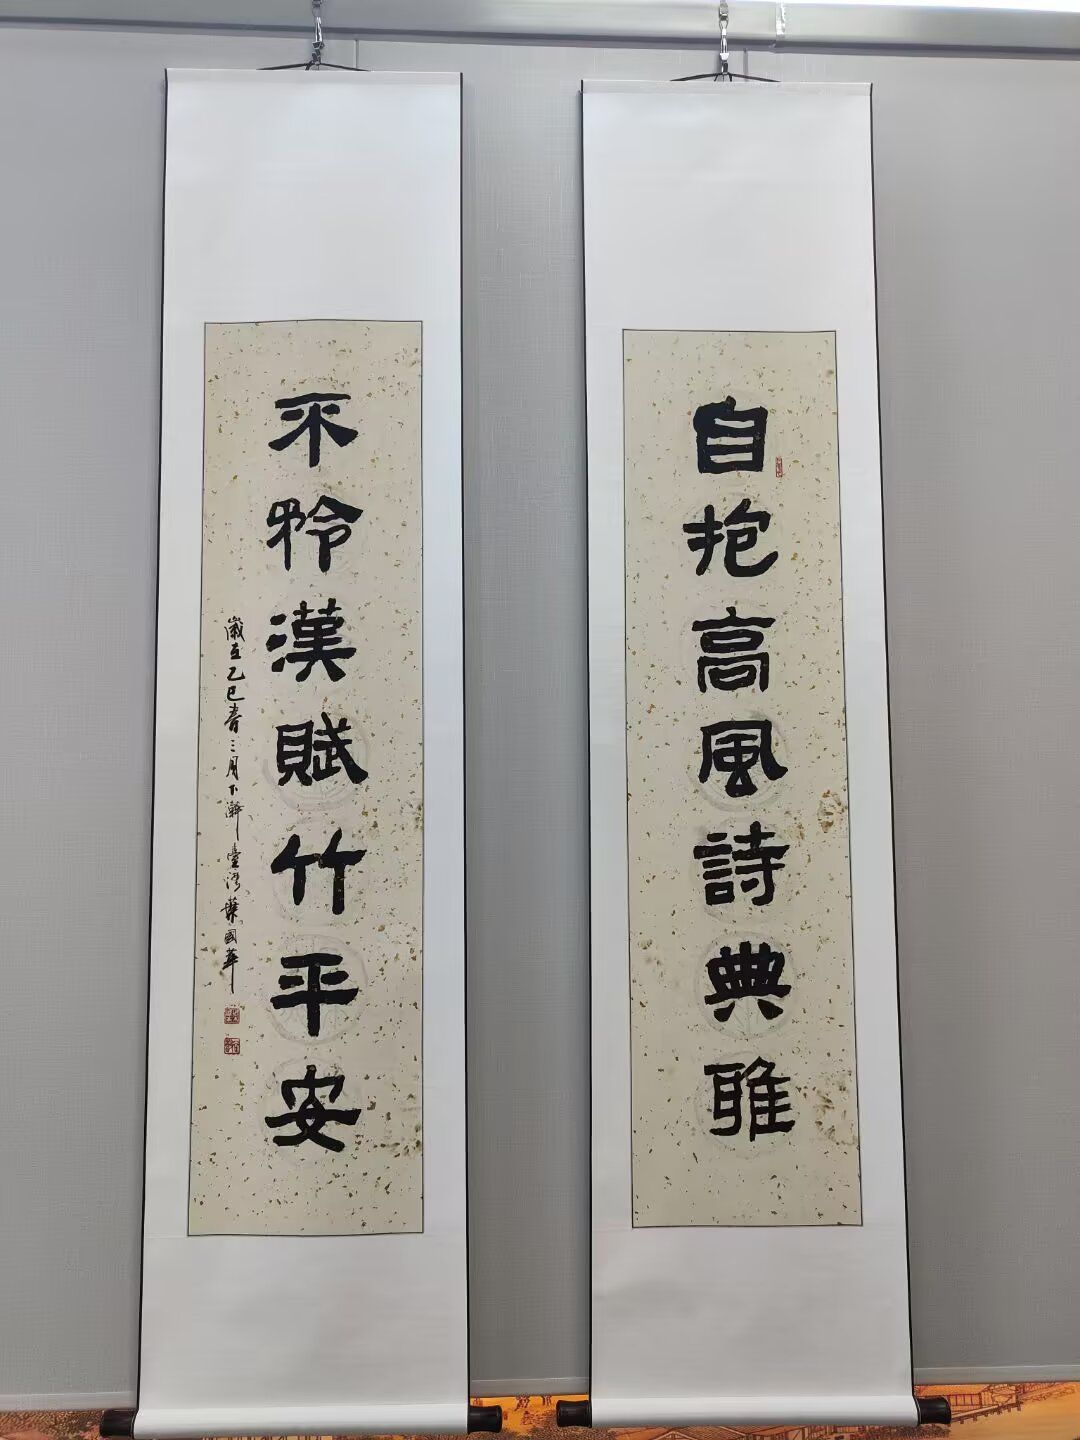 自抱高風詩典雅
不矜漢賦竹平安
歲在乙巳春三月下澣臺灣葉國華